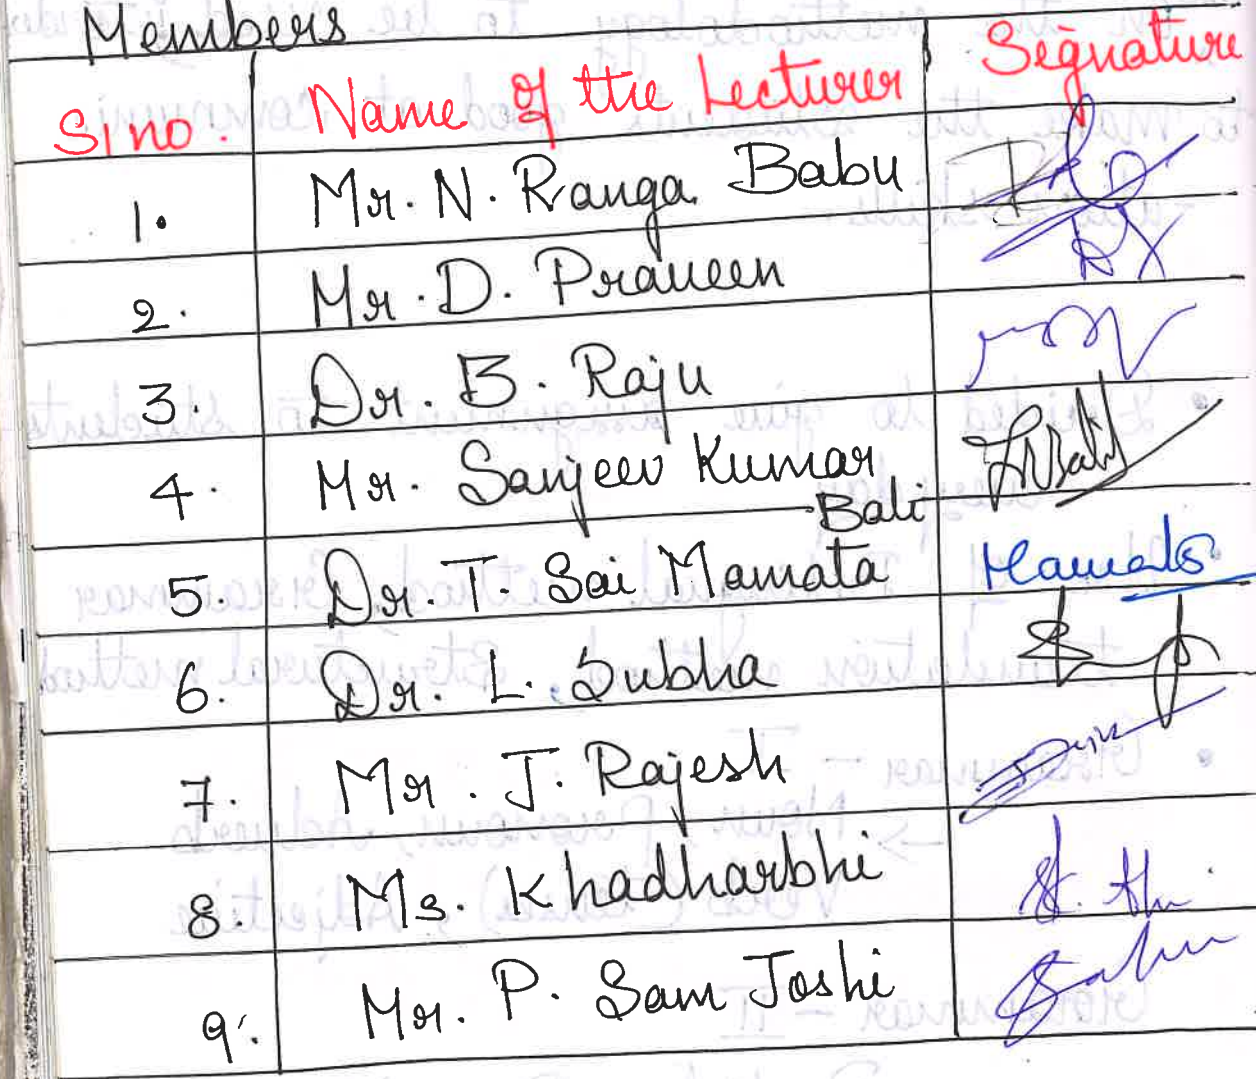 Members
Sl no. Name of the Lecturer Signature
1. Mr. N. Ranga Babu
2. Mr. D. Praveen
3. Dr. B. Raju
4. Mr. Sanjeev Kumar
Bali
5. Dr. T. Sai Mamata Mamata
6. Dr. L. Subha
7. Mr. J. Rajesh
8. Ms. Khadharbhi
9. Mr. P. Sam Joshi